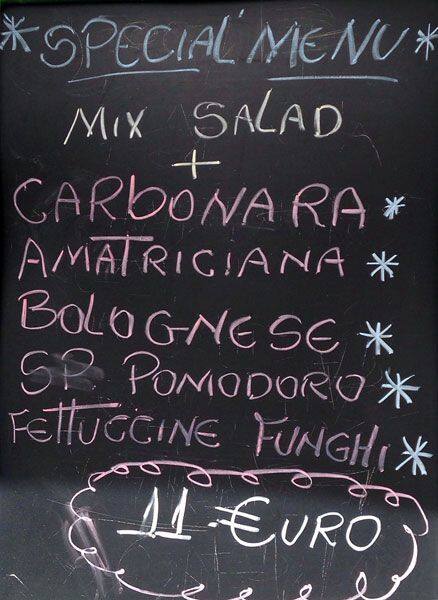 * SPECIAL MENU *
MIX SALAD
+
CARBONARA *
AMATRICIANA *
BOLOGNESE *
SP. POMODORO *
FETTUCCINE FUNGHI *
11 €URO